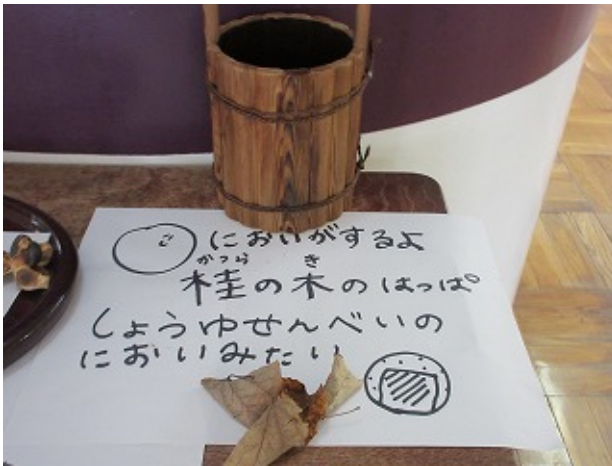 においがするよ
かつら き
桂の木のはっぱ
しょうゆせんべいの
においみたい